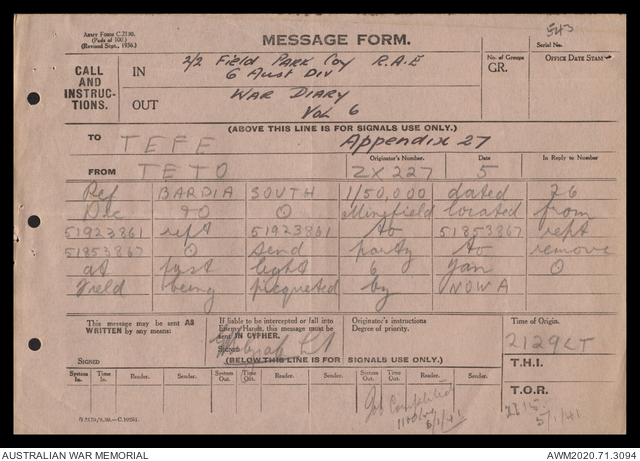 Army Form C.2130.
(Pads of 100.)
(Revised Sept., 1936.)
MESSAGE FORM.
543
Serial No.
CALL
AND
INSTRUC-
TIONS.
IN
2/2 Field Park Coy R.A.E
6 Aust Div
No. of Groups
GR.
OFFICE DATE STAMP
OUT
WAR DIARY
VOL 6
(ABOVE THIS LINE IS FOR SIGNALS USE ONLY.)
TO TEFE
Appendix 27
FROM TETO
Originator's Number.
ZX227
Date
5
In Reply to Number
Ref BARDIA SOUTH 1/50,000 dated 26
Dec 90 O Minefield located from
51923861 rept 51923861 to 51853867 rept
51853867 O send party to remove
at first light 6 Jan O
Field being picqueted by NOWA
This message may be sent AS
WRITTEN by any means:
SIGNED
If liable to be intercepted or fall into
Enemy Hands, this message must be
sent IN CYPHER.
SIGNED Lt
Originator's instructions
Degree of priority.
Time of Origin.
2129LT
(BELOW THIS LINE IS FOR SIGNALS USE ONLY.)
T.H.I.
System In. Time In. Reader. Sender. System Out. Time Out. Reader. Sender. System Out. Time Out. Reader. Sender.
T.O.R.
Job Completed
6/1/41
2215
5/1/41
AUSTRALIAN WAR MEMORIAL
AWM2020.71.3094